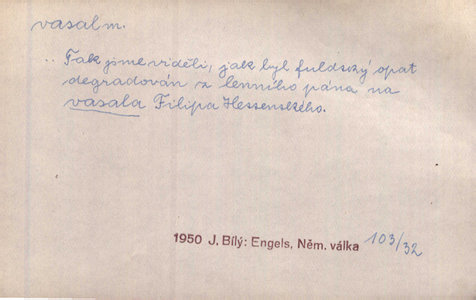 vasal m.
.. Tak jsme viděli, jak byl fuldský opat
degradován z lenního pána na
vasala Filipa Hessenského.
1950 J. Bílý: Engels, Něm. válka 103/32